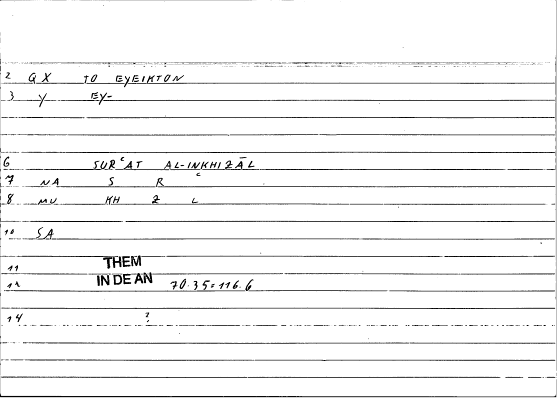 2 QX TO EYEIKTON
3 Y EY-
6 SURʿAT AL-INKHIZĀL
7 NA S R ʿ
8 MU KH Z L
10 SA
11 THEM
12 IN DE AN 70.35=116.6
14 ?